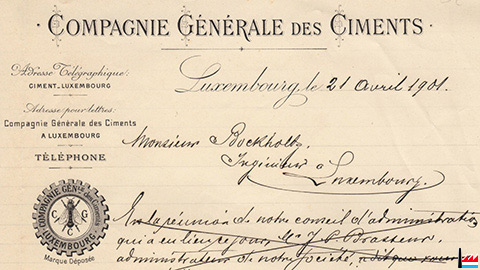 COMPAGNIE GÉNÉRALE DES CIMENTS
Adresse Télégraphique:
CIMENT_LUXEMBOURG
Luxembourg, le 21 avril 1901.
Adresse pour lettres:
Compagnie Générale des Ciments
A LUXEMBOURG
Monsieur Bockholtz,
Ingénieur à
Luxembourg.
TÉLÉPHONE
COMPAGNIE GÉNle des Ciments
LUXEMBOURG
C G C
Marque Déposée
En la réunion de notre conseil d'administration
qui a eu lieu ce jour, Mr J. P. Brasseur,
administrateur de notre société,